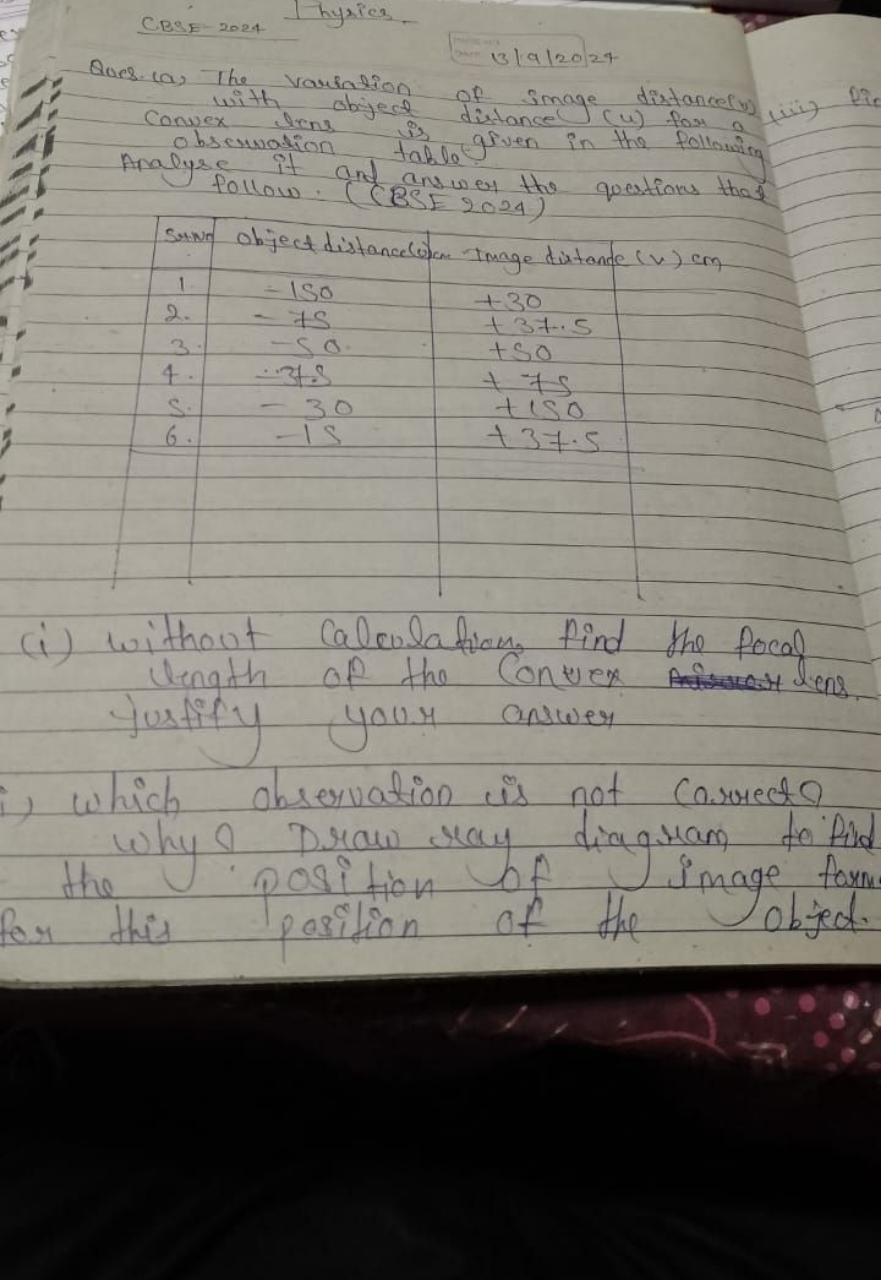 Physics
CBSE-2024
13/9/2024
Ques. (a) The variation of image distance(v)
with object distance (u) for a
Convex lens is given in the following
observation table
Analyse it and answer the questions that
follow. (CBSE 2024)
Sr.No object distance(u)cm Image distance (v) cm
1. -150 +30
2. -75 +37.5
3. -50. +50
4. -37.5 +75
5. -30 +150
6. -15 +37.5
(i) without Calculation, find the focal
length of the Convex lens.
Justify your answer
i) which observation is not correct?
why? Draw ray diagram to find
the position of image form
for this position of the object.
iii)